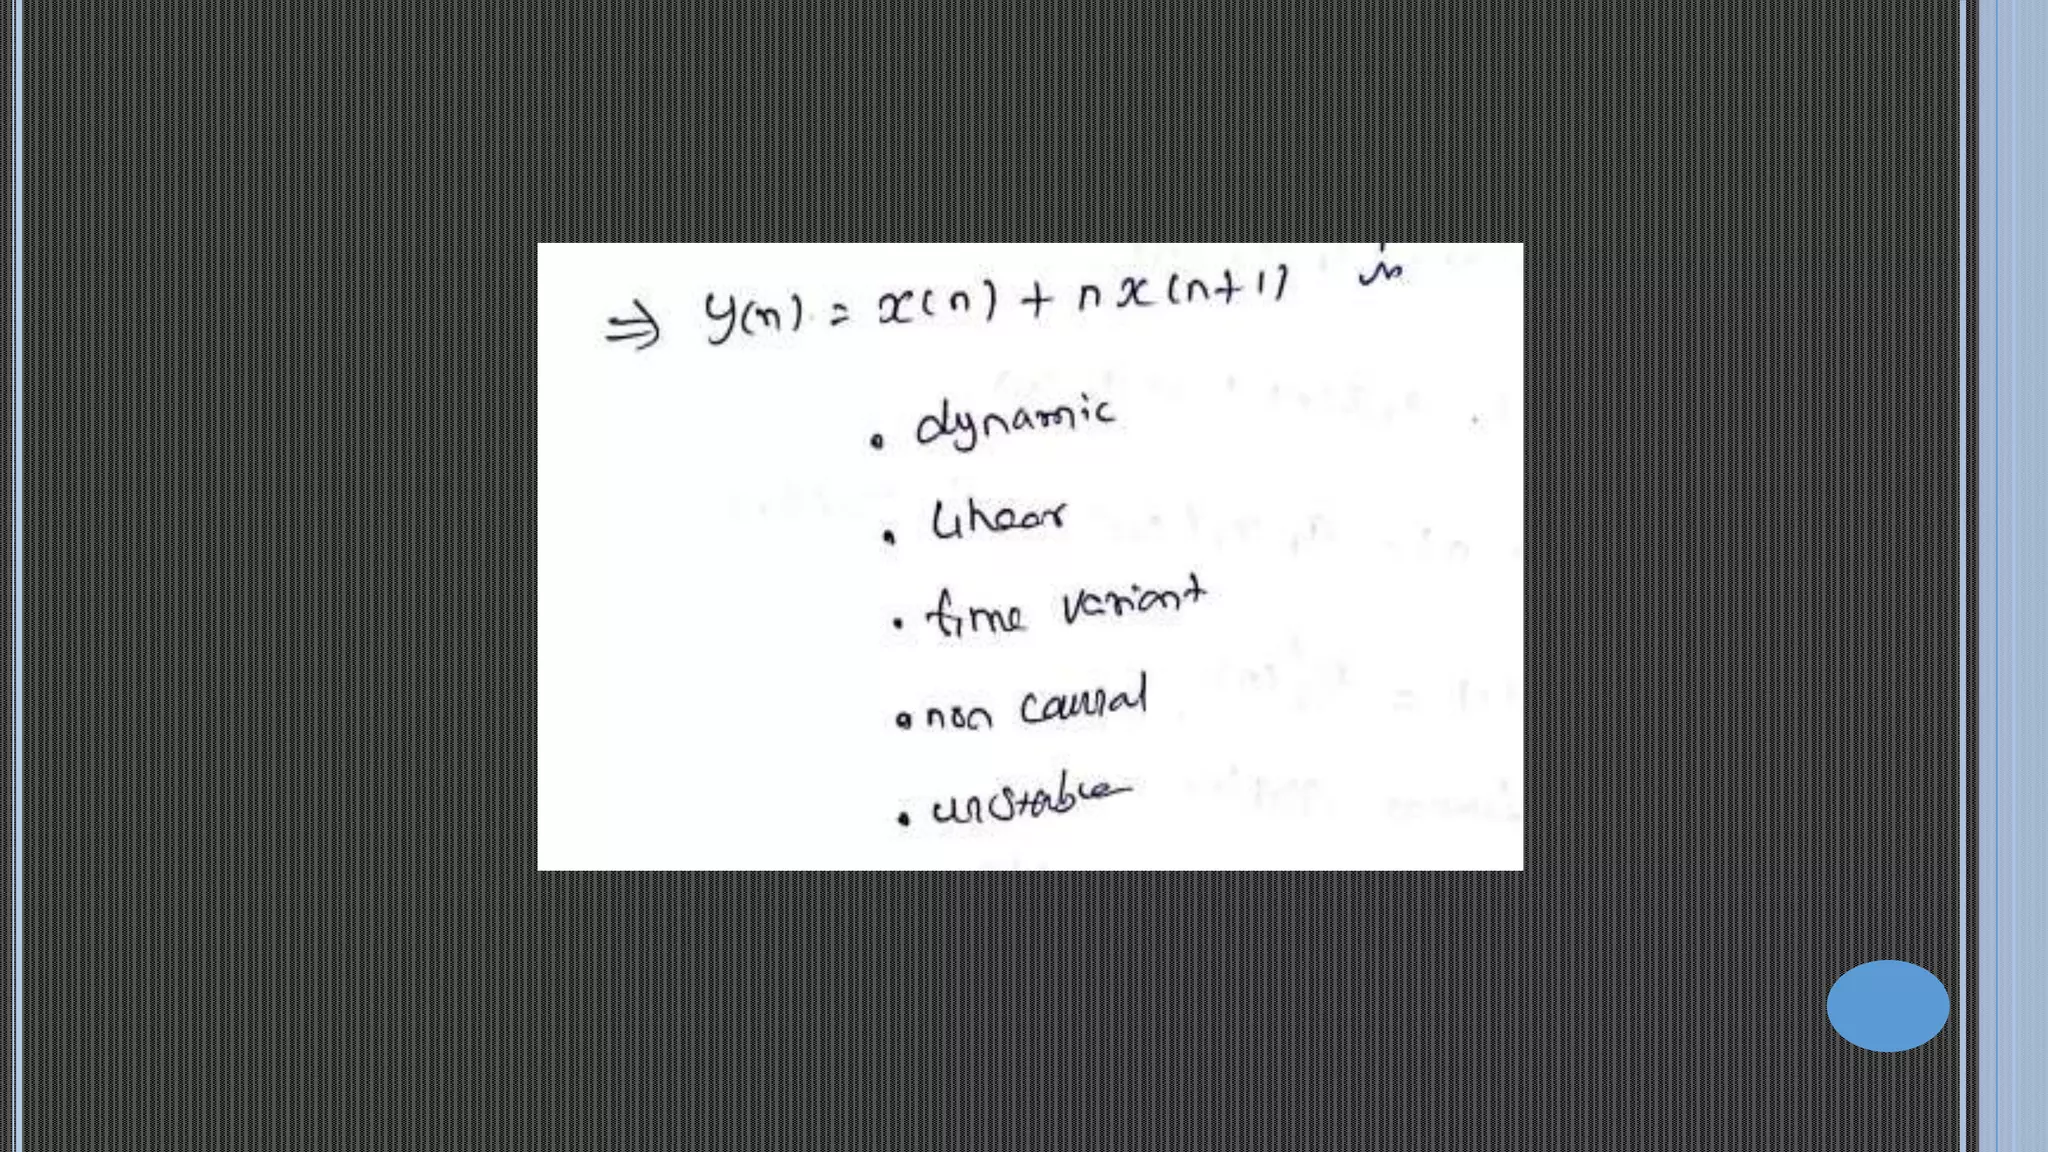 ⇒ y(n) = x(n) + n x(n+1) is
• dynamic
• linear
• time variant
• non causal
• unstable